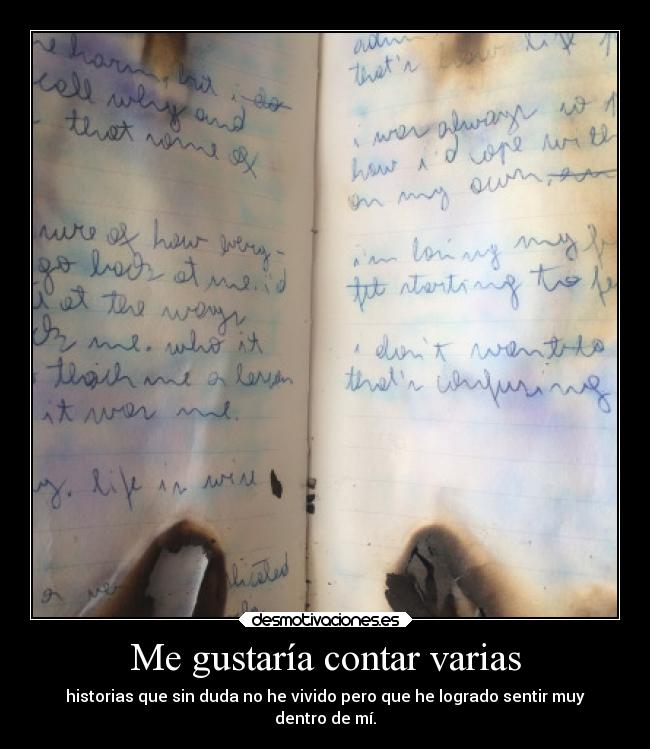 me harm, but i do
call why and
that some of
sure of how every-
go back at me. i'd
at at the ways
me. who it
teach me a lesson
it was me.
life is wise
a
licated
that's how life
i was always so
how i'd cope with
on my own,
i'm losing my
starting to fe
i don't want to
that's confusing
desmotivaciones.es
Me gustaría contar varias
historias que sin duda no he vivido pero que he logrado sentir muy
dentro de mí.